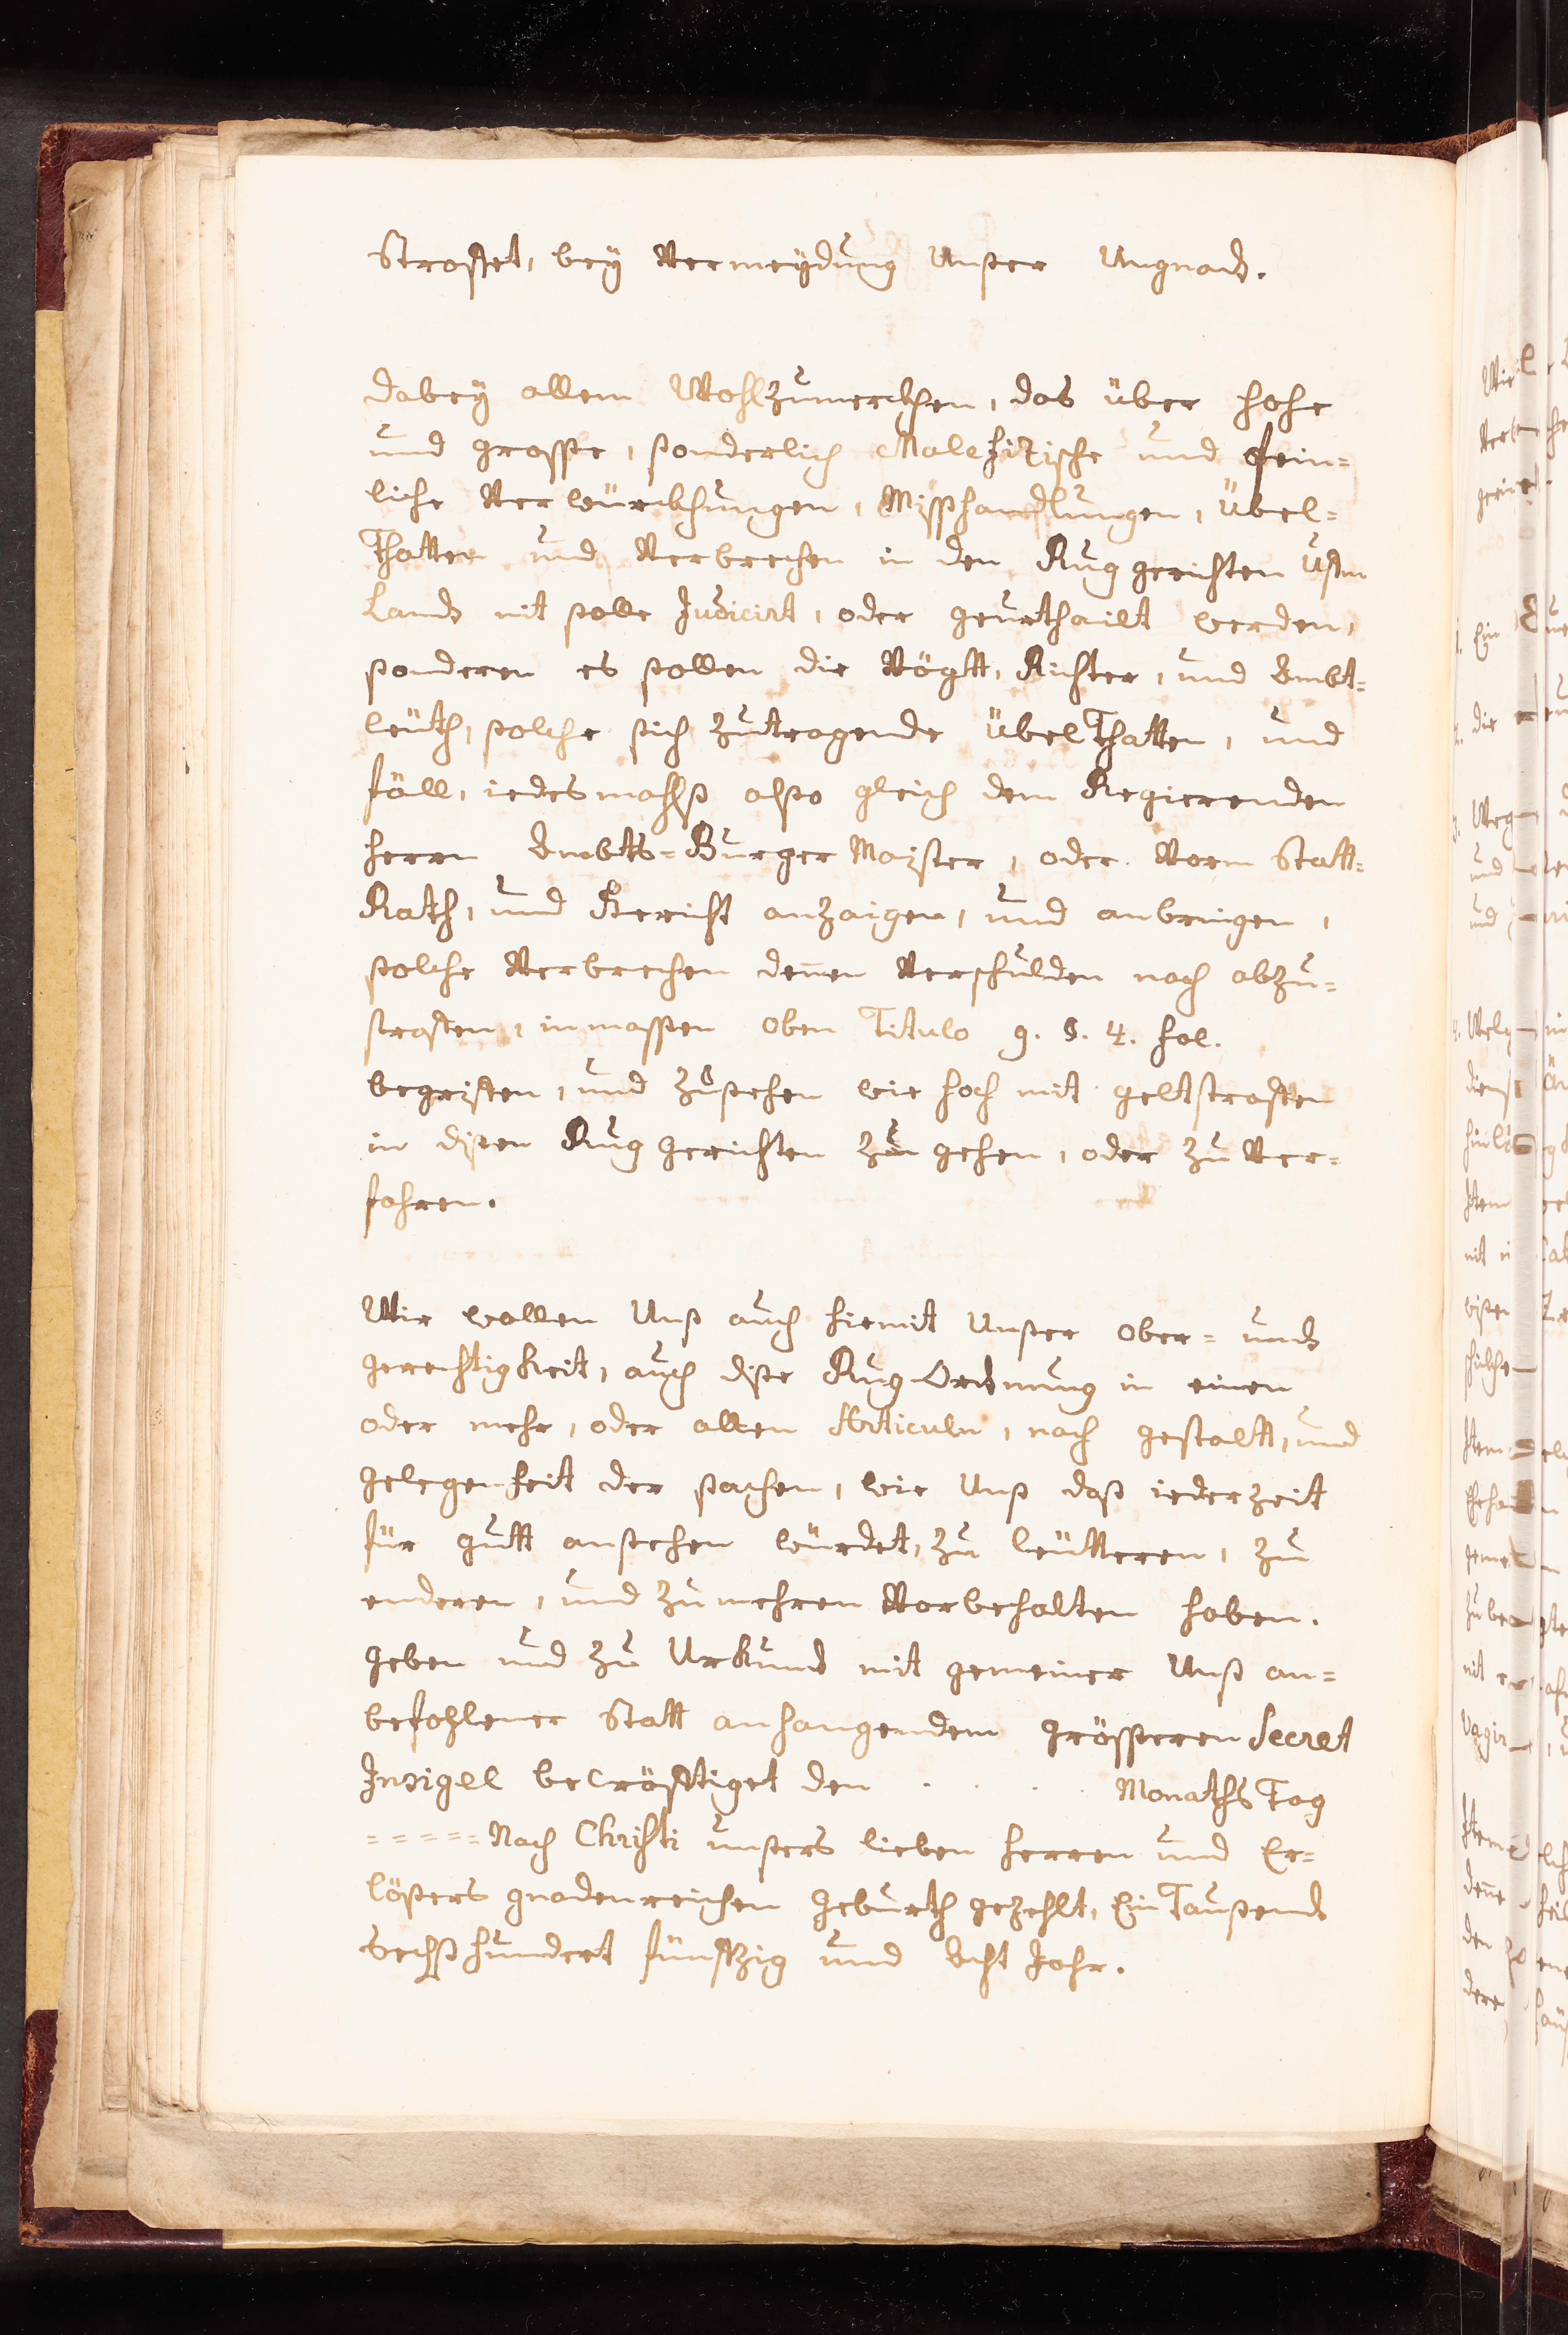 Straffet, bey Vermeydung Unßer Ungnad.
dabey allem Wohlzumerckhen, das über hohe
und grosse, ßonderlich Malefizische und Pein=
liche Verwürckhungen, Missßhandlungen, Übel=
Thatten und Verbrechen in den Ruggerichten Ufm
Land nit ßolle Judicirt, oder geurthailt werden,
ßonderen es ßollen die Vögtt, Richter, und Ambt=
leüth, ßolche ßich zutragende ÜbelThatten, und
fäll, iedesmahlß alßo gleich dem Regierenden
Herrn Ambts=BurgerMaister, oder Vorm Statt=
Rath, und Gericht anzaigen, und anbringen,
ßolche Verbrechen denen Verschulden nach abzu=
straffen, inmassen oben Titulo 9. §. 4. fol.
begriffen, und zußehen wie hoch mit geltstraffen
in dißen Ruggerichten zu gehen, oder zu Ver=
fahren.
Wir wollen Unß auch hiemit Unßer Ober= und
gerechtigkeit, auch diße Rug-Ordnung in einen
oder mehr, oder allen Articuln, nach gestaltt, und
gelegenheit der ßachen, wie Unß daß iederzeit
für gutt anßehen würdet, zu leütteren, zu
enderen, und zumehren Vorbehalten haben.
Geben und zu Urkund mit gemeiner Unß an=
befohlener Statt anhangendem grösseren Secret
Insigel becräfftiget den . . . . MonathsTag
=====Nach Christi unßers lieben Herren und Er=
lößers gnadenreichen Geburth gezehlt, EinTaußend
Sechßhundert fünffzig und Acht Jahr.